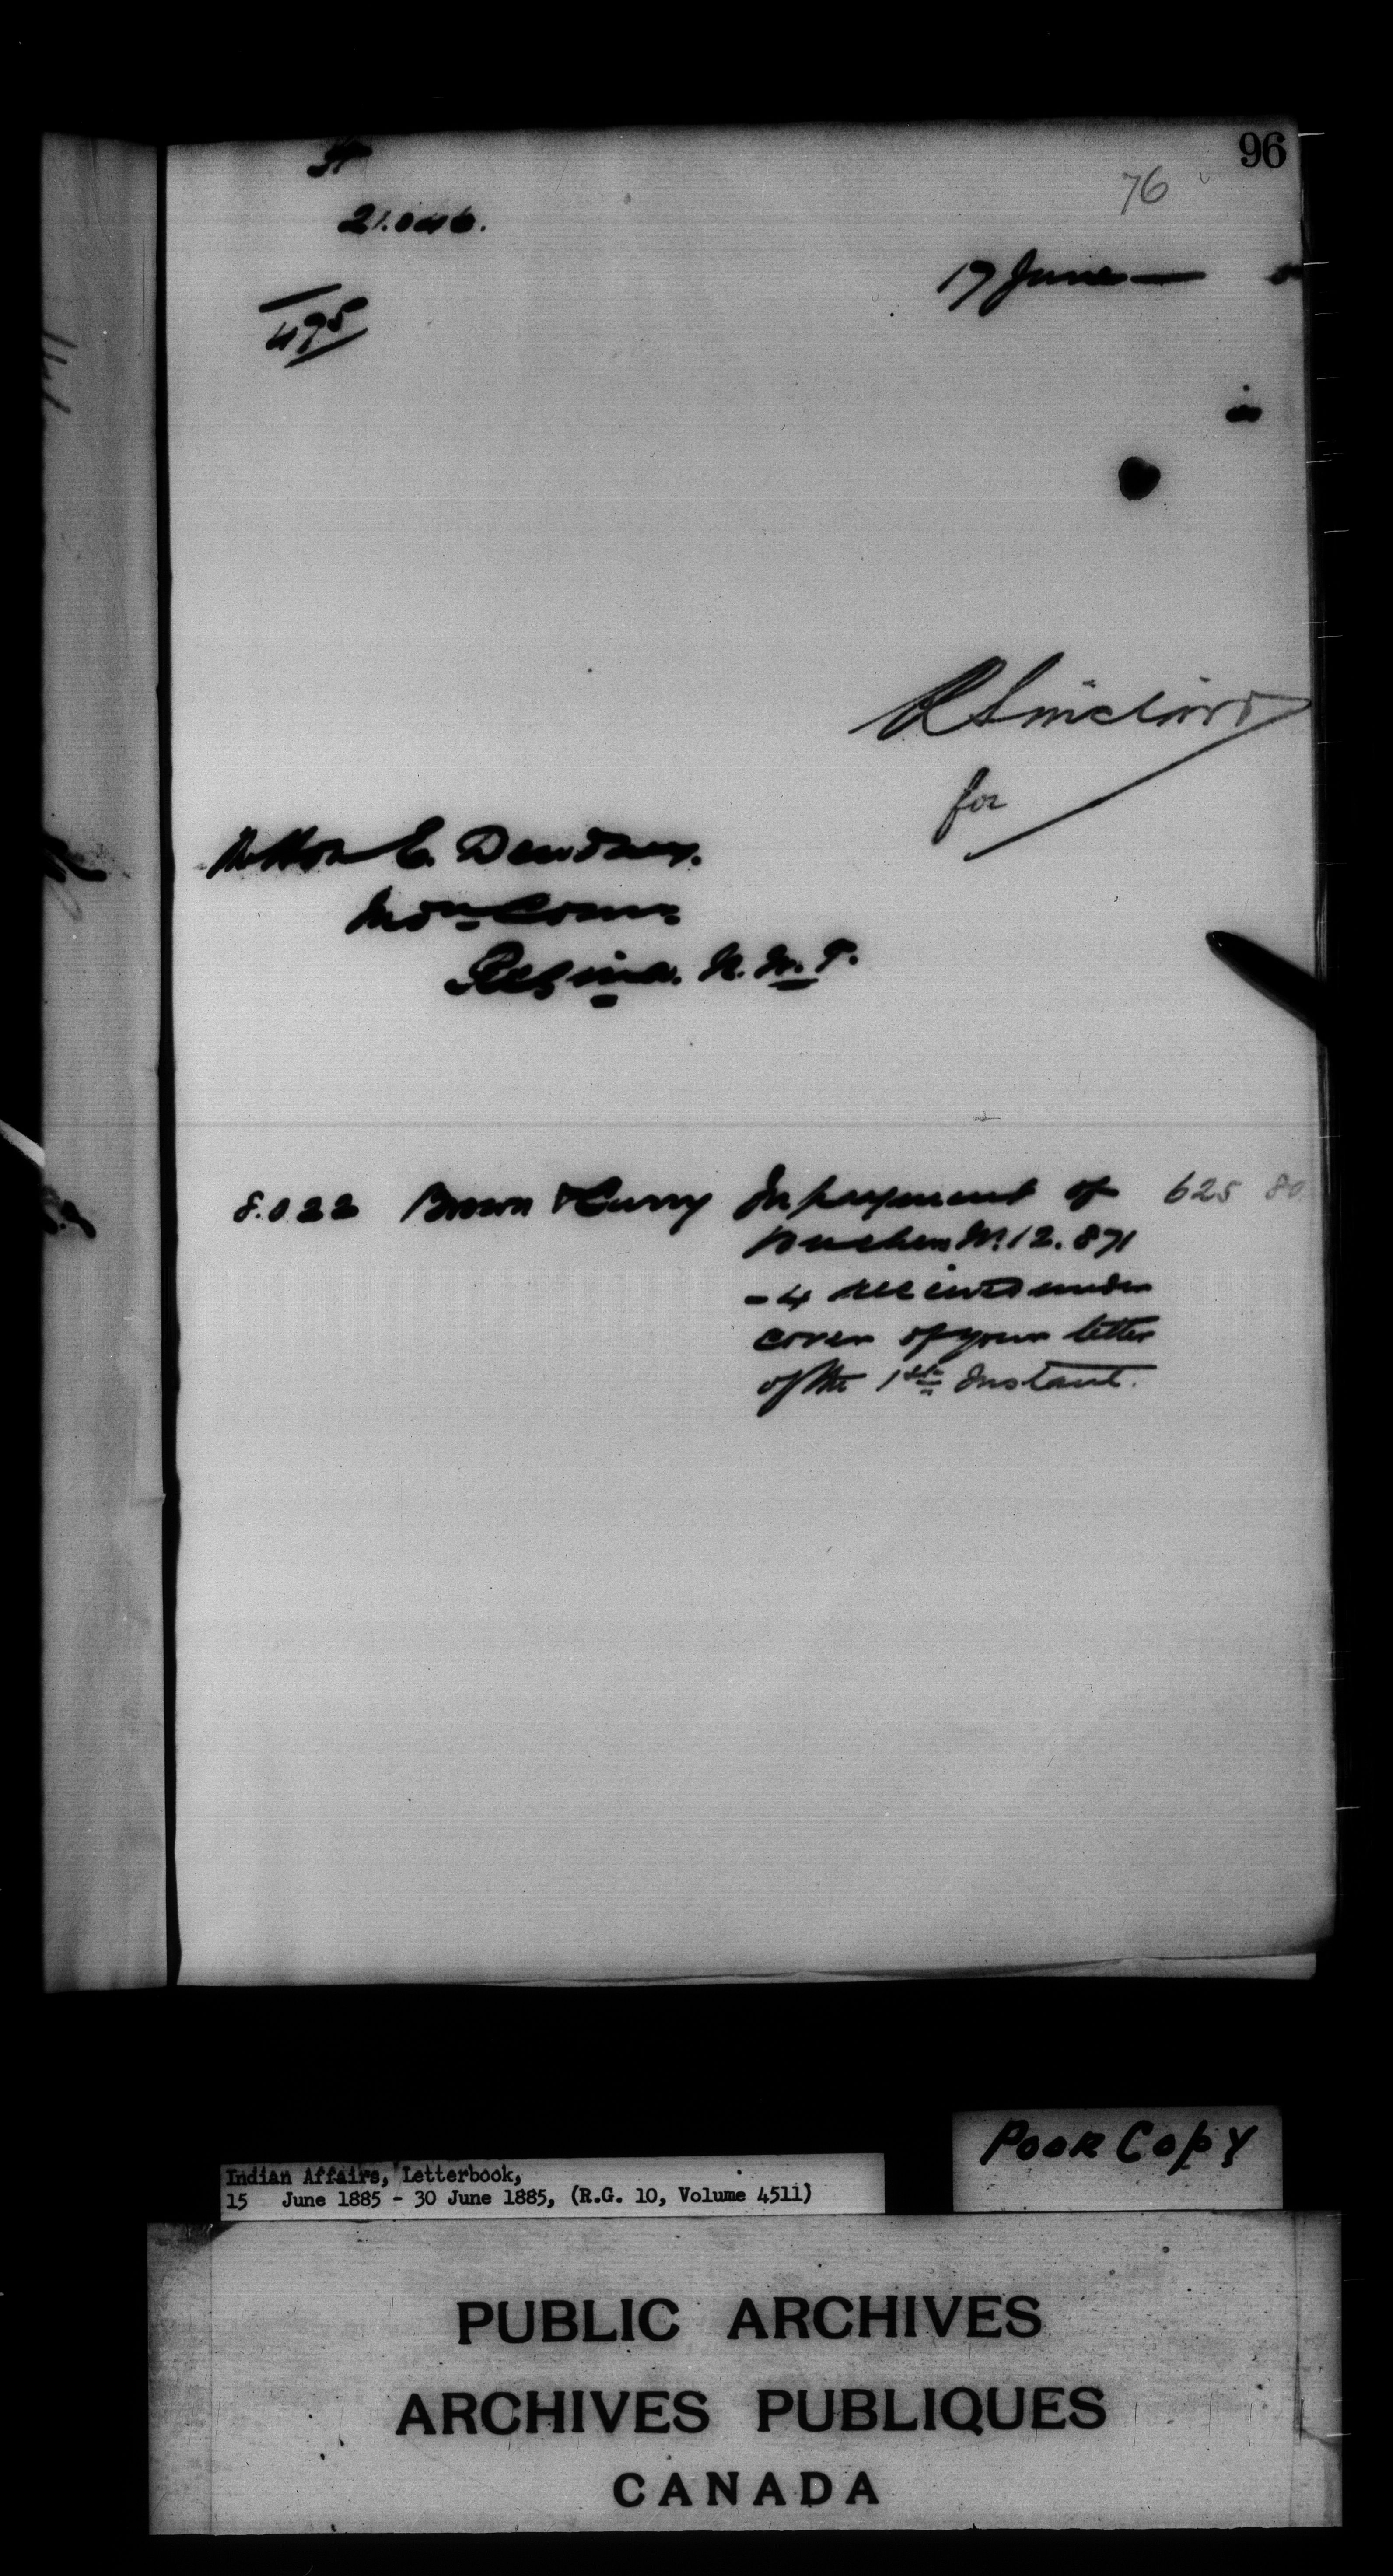 96
76
21.046.
17 June —
475
in
R Sinclair
for
The Hon E. Dewdney.
Indn Comr
Regina. N. W. T.
8.022 Brown & Curry In payment of 625 80
vouchers No. 12.871
- 4 received under
cover of your letter
of the 1st Instant.
Poor Copy
Indian Affairs, Letterbook,
15 June 1885 - 30 June 1885, (R.G. 10, Volume 4511)
PUBLIC ARCHIVES
ARCHIVES PUBLIQUES
CANADA